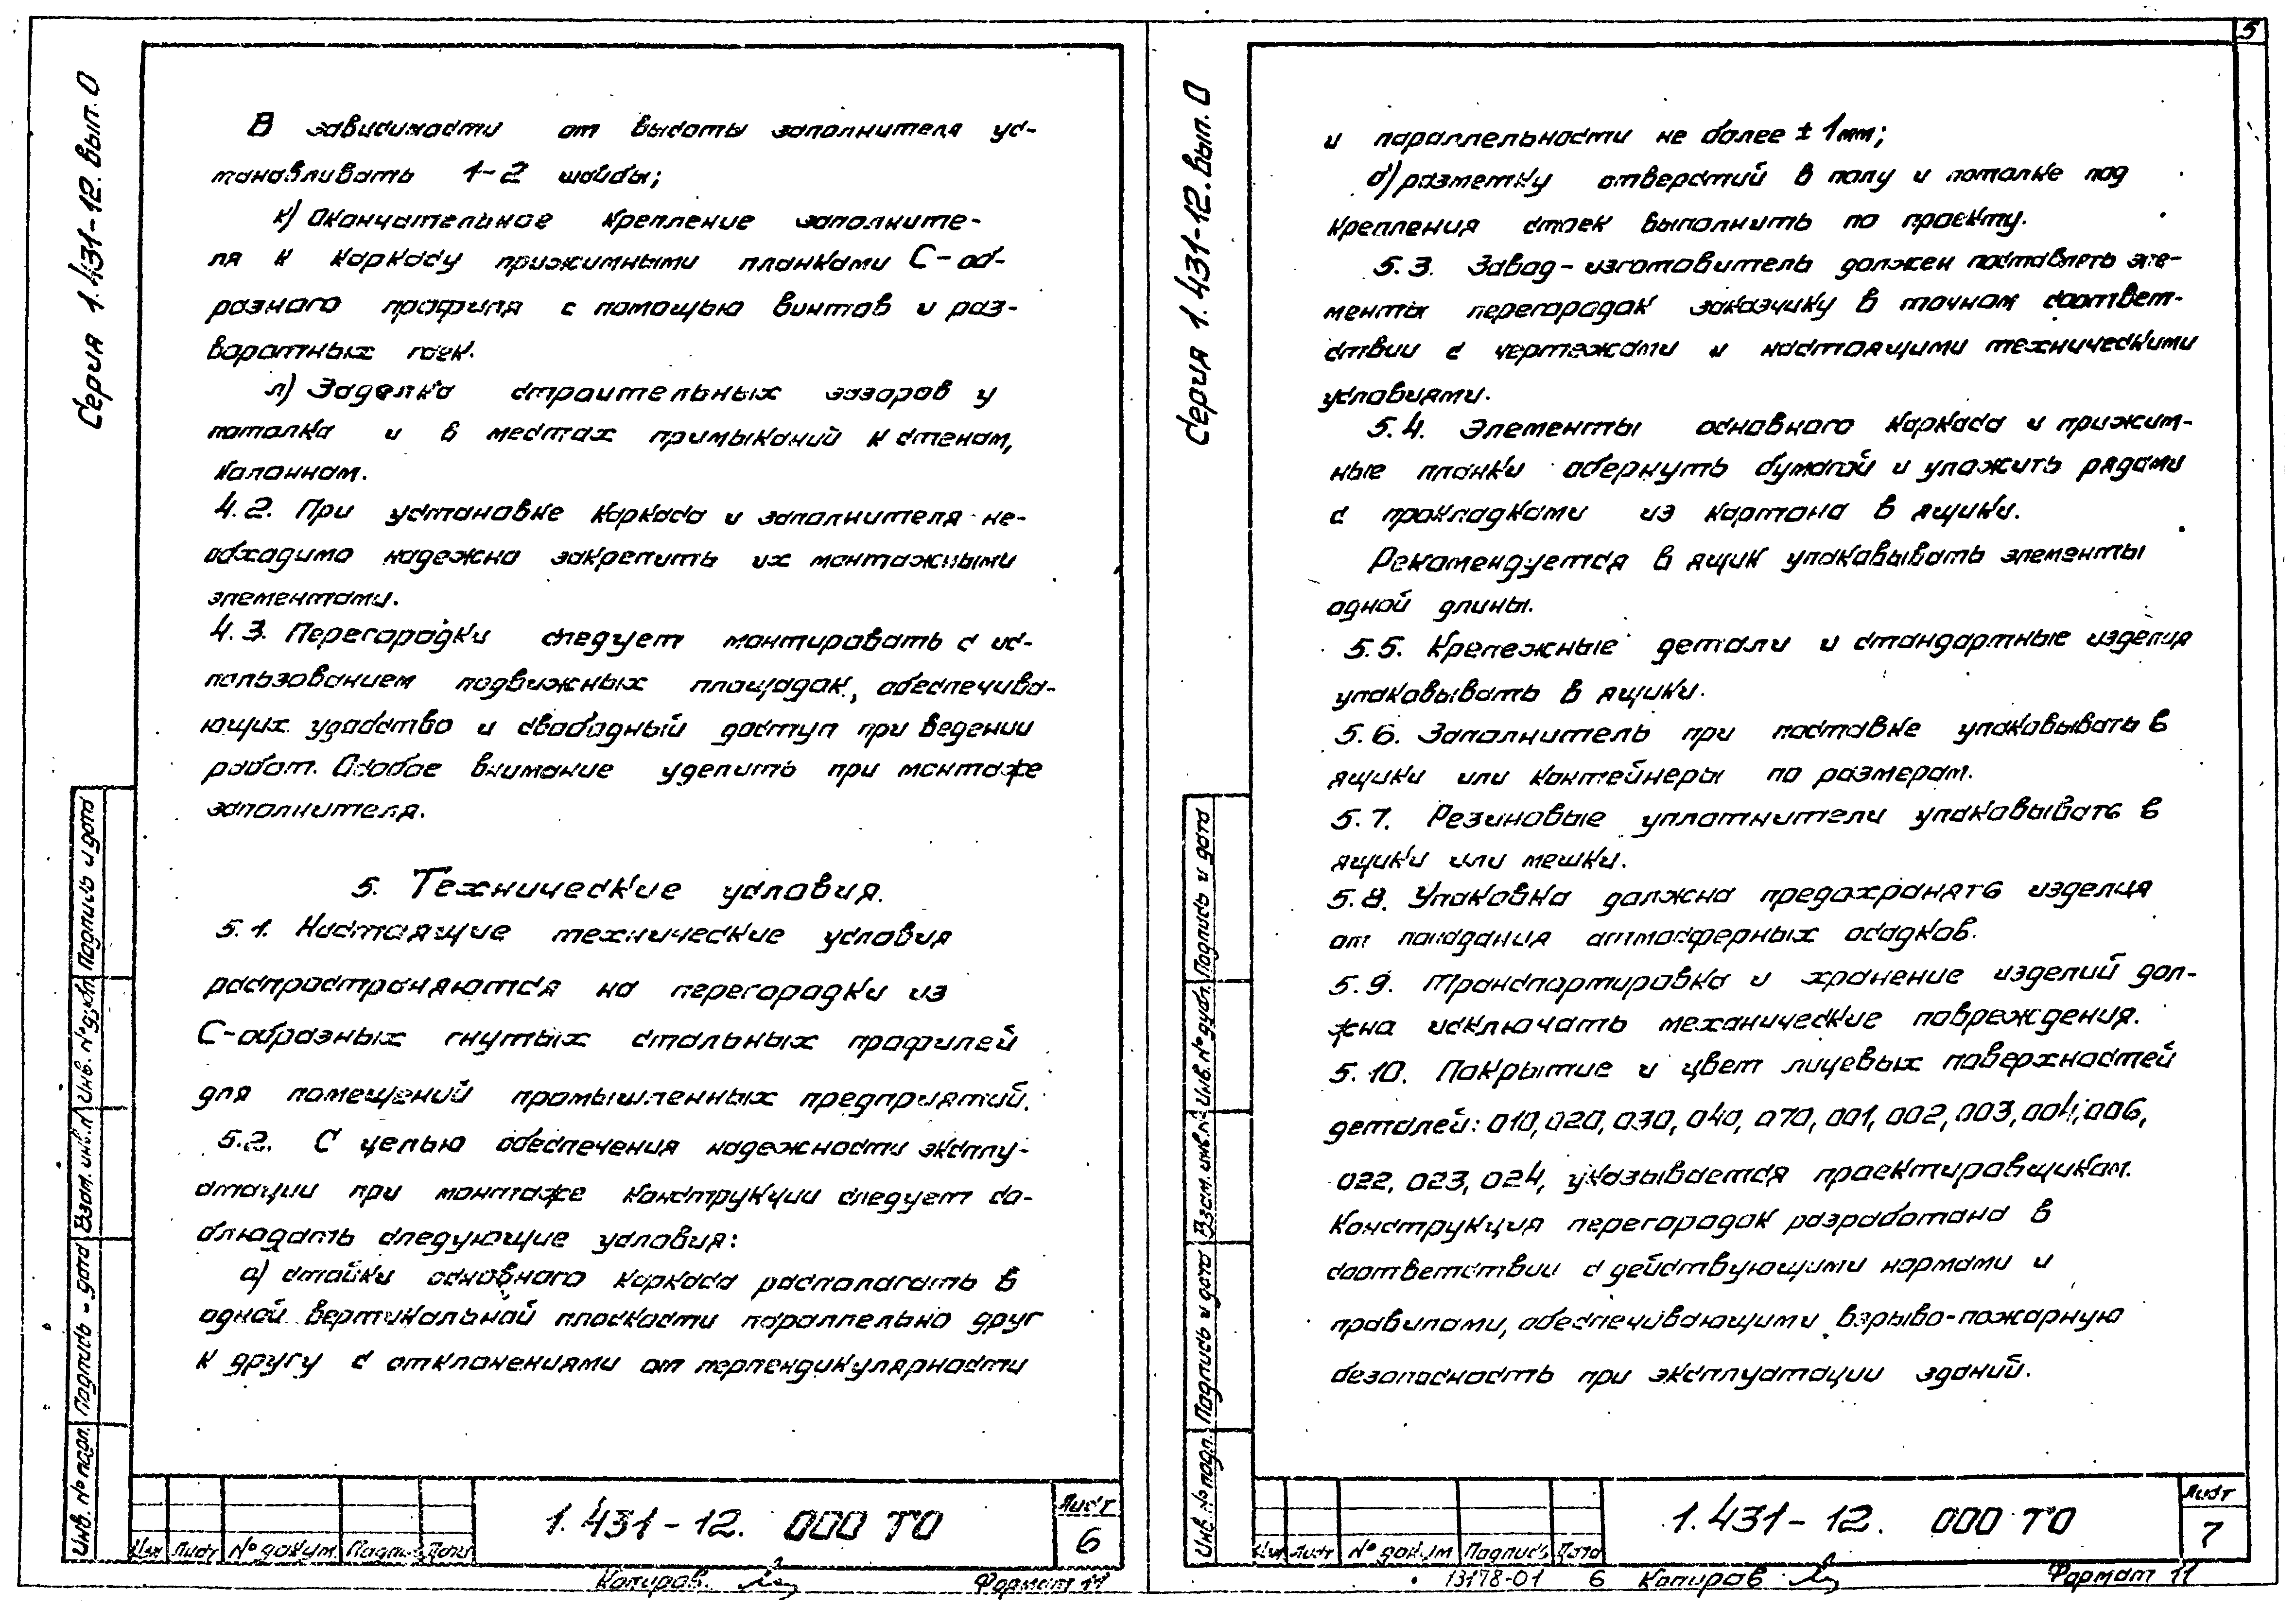 Серия 1.431-12. Вып. 0
В зависимости от высоты заполнителя ус-
танавливать 1-2 шайбы;
к) Окончательное крепление заполните-
ля к каркасу прижимными планками С-об-
разного профиля с помощью винтов и раз-
воротных гаек.
л) Заделка строительных зазоров у
потолка и в местах примыканий к стенам,
колоннам.
4.2. При установке каркаса и заполнителя не-
обходимо надежно закрепить их монтажными
элементами.
4.3. Перегородки следует монтировать с ис-
пользованием подвижных площадок, обеспечива-
ющих удобство и свободный доступ при ведении
работ. Особое внимание уделить при монтаже
заполнителя.
5. Технические условия.
5.1. Настоящие технические условия
распространяются на перегородки из
С-образных гнутых стальных профилей
для помещений промышленных предприятий.
5.2. С целью обеспечения надежности эксплу-
атации при монтаже конструкции следует со-
блюдать следующие условия:
а) стойки основного каркаса располагать в
одной вертикальной плоскости параллельно друг
к другу с отклонениями от перпендикулярности
Инв. № подл. Подпись и дата Взам. инв. № Инв. № дубл. Подпись и дата
Изм Лист № докум. Подпись Дата
1.431-12. 000 ТО
Лист
6
Копировал
Формат 11
5
Серия 1.431-12. Вып. 0
и параллельности не более ± 1 мм;
б) разметку отверстий в полу и потолке под
крепления стоек выполнить по проекту.
5.3. Завод-изготовитель должен поставлять эле-
менты перегородок заказчику в точном соответ-
ствии с чертежами и настоящими техническими
условиями.
5.4. Элементы основного каркаса и прижим-
ные планки обернуть бумагой и уложить рядами
с прокладками из картона в ящики.
Рекомендуется в ящик упаковывать элементы
одной длины.
5.5. Крепежные детали и стандартные изделия
упаковывать в ящики.
5.6. Заполнитель при поставке упаковывать в
ящики или контейнеры по размерам.
5.7. Резиновые уплотнители упаковывать в
ящики или мешки.
5.8. Упаковка должна предохранять изделия
от попадания атмосферных осадков.
5.9. Транспортировка и хранение изделий дол-
жна исключать механические повреждения.
5.10. Покрытие и цвет лицевых поверхностей
деталей: 010, 020, 030, 040, 070, 001, 002, 003, 004, 006,
022, 023, 024, указывается проектировщиком.
Конструкция перегородок разработана в
соответствии с действующими нормами и
правилами, обеспечивающими взрыво-пожарную
безопасность при эксплуатации зданий.
Инв. № подл. Подпись и дата Взам. инв. № Инв. № дубл. Подпись и дата
Изм Лист № докум Подпись Дата
1.431-12. 000 ТО
Лист
7
13178-01 6 Копировал
Формат 11